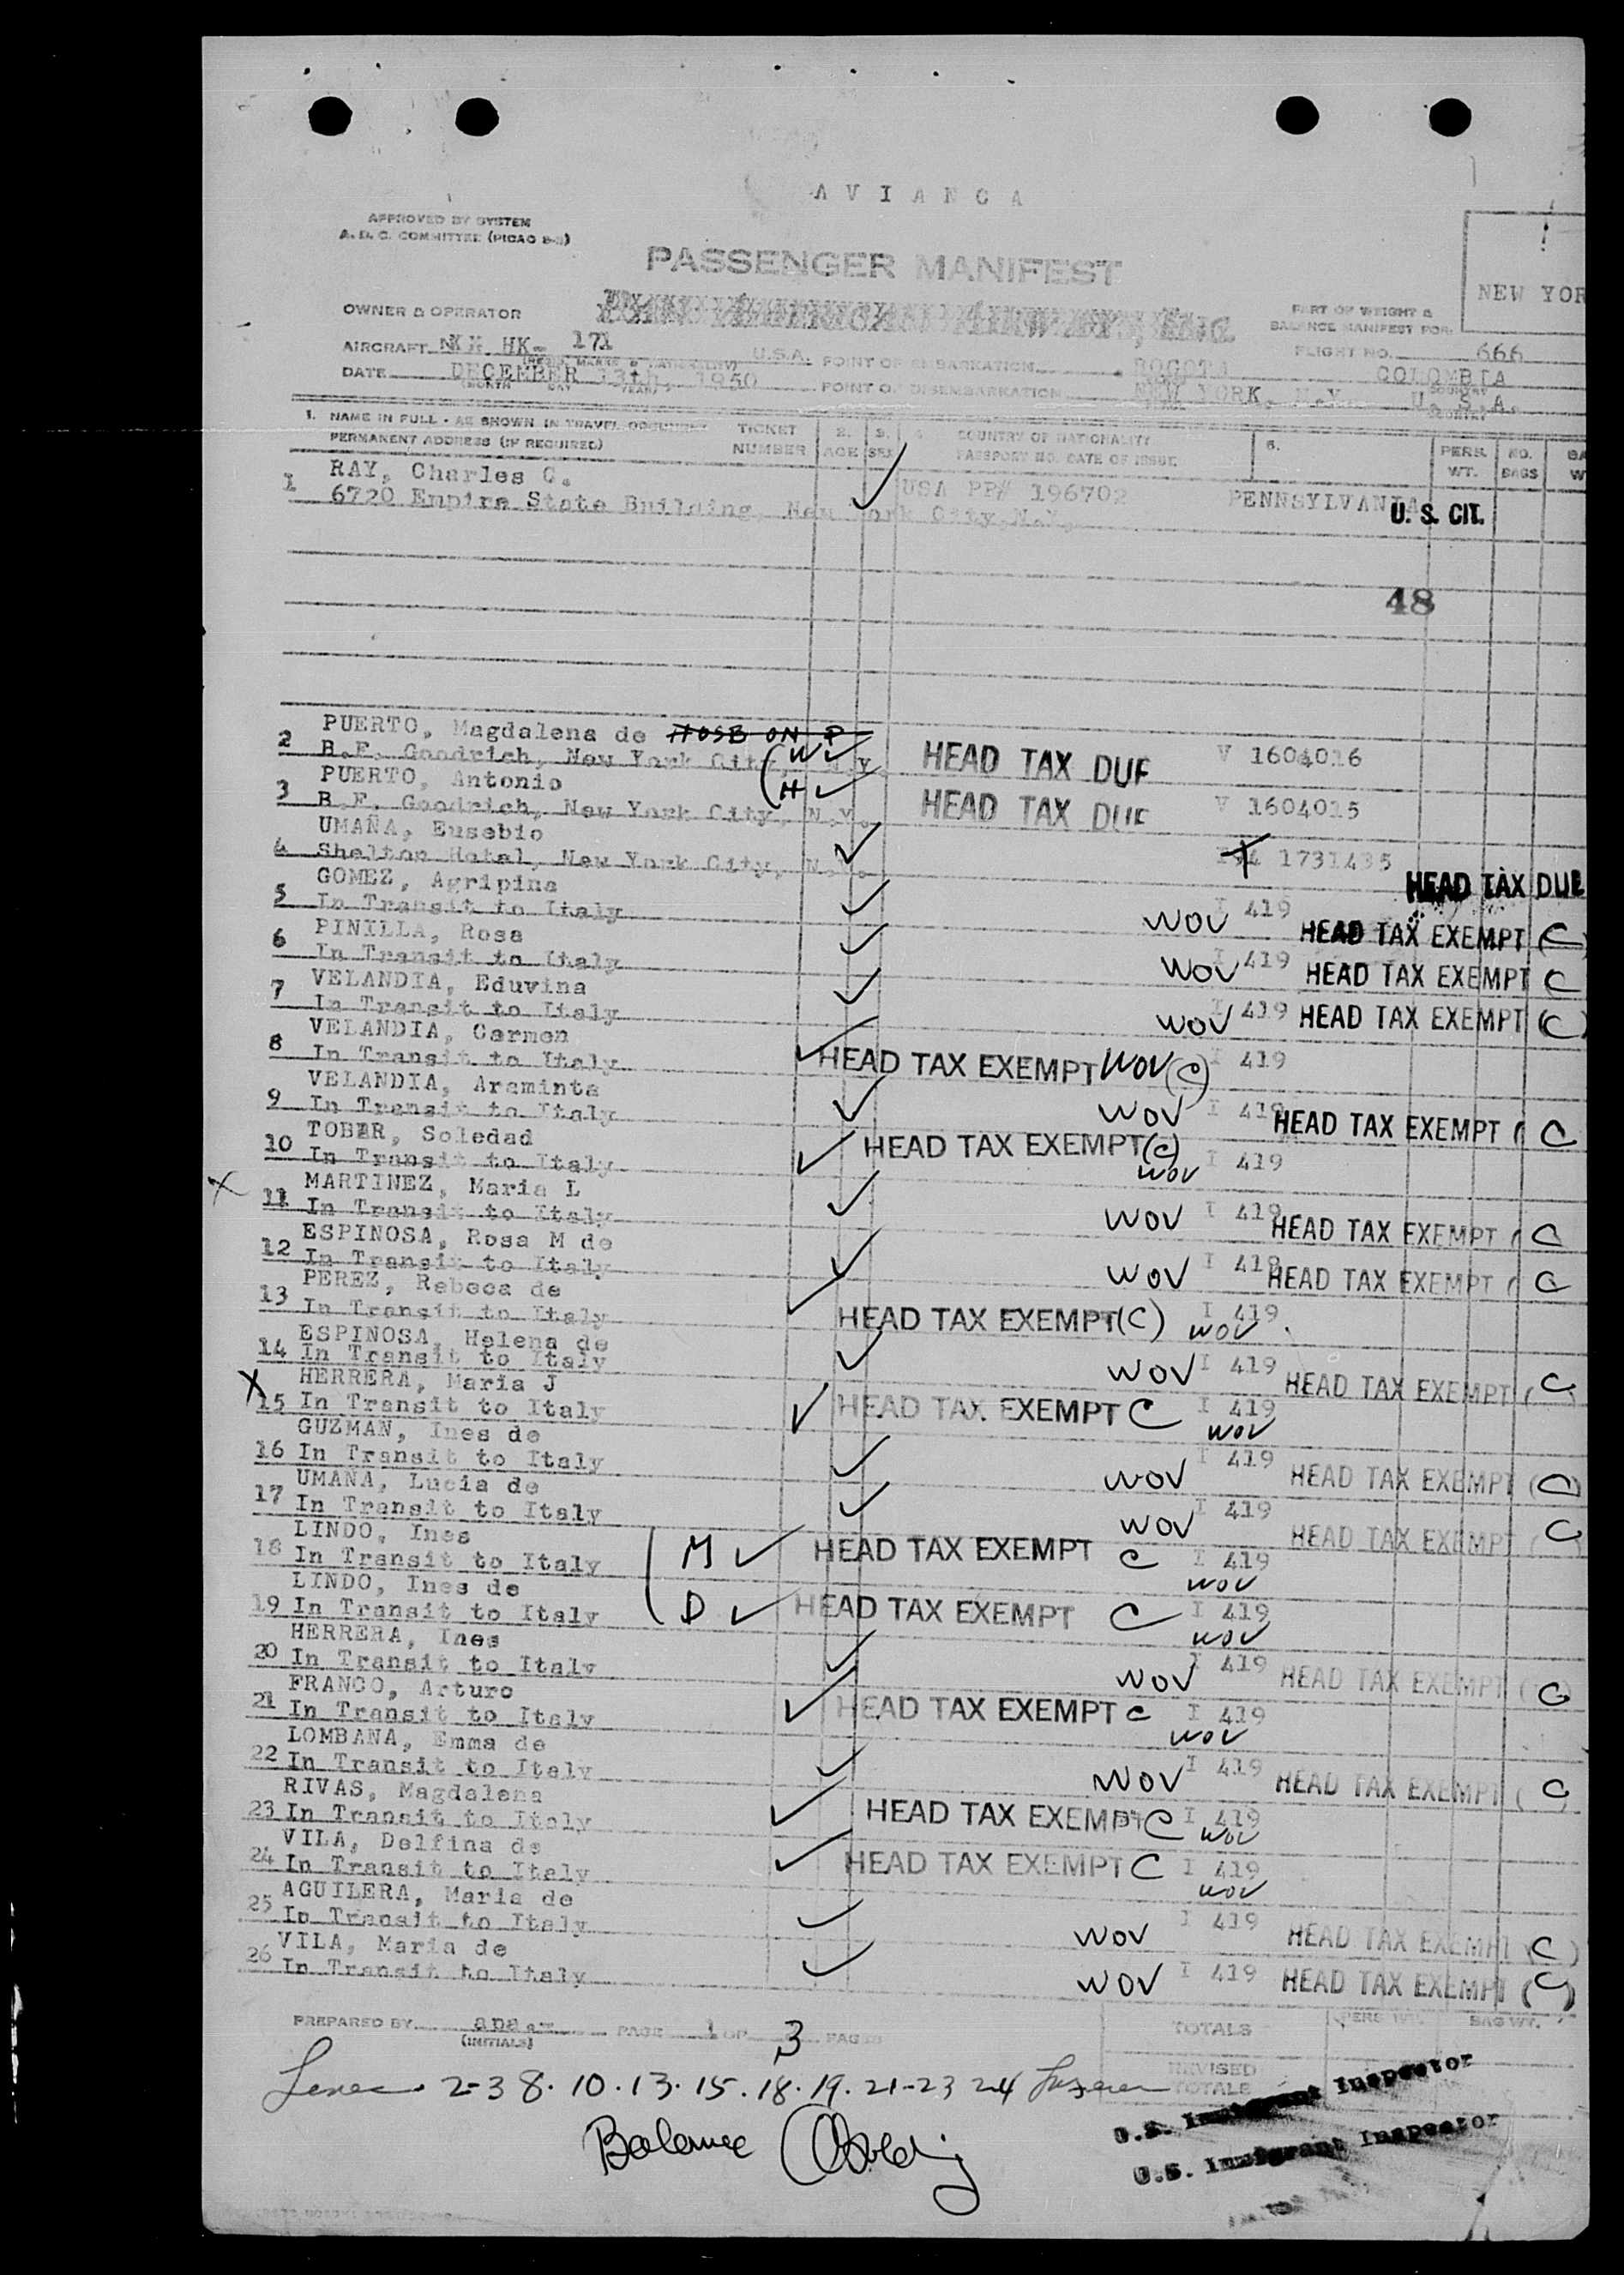 AVIANCA
APPROVED BY SYSTEM
A. D. C. COMMITTEE (PICAO B-3)
PASSENGER MANIFEST
NEW YOR
OWNER & OPERATOR
PART OF WEIGHT &
BALANCE MANIFEST FOR:
AIRCRAFT HK- 171
U.S.A. POINT OF EMBARKATION BOGOTA COLOMBIA
FLIGHT NO. 666
DATE DECEMBER 13th, 1950
POINT OF DISEMBARKATION NEW YORK, N.Y. U. S. A.
1. NAME IN FULL - AS SHOWN IN TRAVEL DOCUMENT TICKET NUMBER 2. AGE 3. SEX COUNTRY OF NATIONALITY 6. PERS. WT. NO. BAGS BA W
PERMANENT ADDRESS (IF REQUIRED) PASSPORT NO. DATE OF ISSUE
RAY, Charles C. USA PP# 196702 PENNSYLVANIA U. S. CIT.
1 6720 Empire State Building, New York City, N.Y.
48
PUERTO, Magdalena de
2 B.F. Goodrich, New York City, N.Y. W HEAD TAX DUE V 1604016
PUERTO, Antonio H
3 B.F. Goodrich, New York City, N.Y. HEAD TAX DUE V 1604015
UMAÑA, Eusebio
4 Shelton Hotel, New York City, N.Y. 1731435 HEAD TAX DUE
GOMEZ, Agripina
5 In Transit to Italy WOV I 419 HEAD TAX EXEMPT (C)
PINILLA, Rosa
6 In Transit to Italy WOV I 419 HEAD TAX EXEMPT C
VELANDIA, Eduvina
7 In Transit to Italy WOV I 419 HEAD TAX EXEMPT (C)
VELANDIA, Carmen
8 In Transit to Italy HEAD TAX EXEMPT WOV (C) I 419
VELANDIA, Araminta
9 In Transit to Italy WOV I 419 HEAD TAX EXEMPT ( C
TOBAR, Soledad
10 In Transit to Italy HEAD TAX EXEMPT (C) WOV I 419
MARTINEZ, Maria L
X 11 In Transit to Italy WOV I 419 HEAD TAX EXEMPT ( C
ESPINOSA, Rosa M de
12 In Transit to Italy WOV I 419 HEAD TAX EXEMPT ( C
PEREZ, Rebeca de
13 In Transit to Italy HEAD TAX EXEMPT (C) I 419 WOV
ESPINOSA, Helena de
14 In Transit to Italy WOV I 419 HEAD TAX EXEMPT ( C )
HERRERA, Maria J
X 15 In Transit to Italy HEAD TAX EXEMPT C I 419 WOV
GUZMAN, Ines de
16 In Transit to Italy WOV I 419 HEAD TAX EXEMPT (C)
UMAÑA, Lucia de
17 In Transit to Italy WOV I 419 HEAD TAX EXEMPT ( C )
LINDO, Ines
18 In Transit to Italy M HEAD TAX EXEMPT C I 419 WOV
LINDO, Ines de
19 In Transit to Italy D HEAD TAX EXEMPT C I 419 WOV
HERRERA, Ines
20 In Transit to Italy WOV I 419 HEAD TAX EXEMPT (C)
FRANCO, Arturo
21 In Transit to Italy HEAD TAX EXEMPT C I 419 WOV
LOMBANA, Emma de
22 In Transit to Italy WOV I 419 HEAD TAX EXEMPT ( C )
RIVAS, Magdalena
23 In Transit to Italy HEAD TAX EXEMPT C I 419 WOV
VILA, Delfina de
24 In Transit to Italy HEAD TAX EXEMPT C I 419 WOV
AGUILERA, Maria de
25 In Transit to Italy WOV I 419 HEAD TAX EXEMPT (C)
VILA, Maria de
26 In Transit to Italy WOV I 419 HEAD TAX EXEMPT (C)
PREPARED BY ana.- PAGE 1 OF 3 PAGES
(INITIALS)
TOTALS PERS WT. BAG WT.
REVISED TOTALS
Lines 2-3 8. 10. 13. 15. 18. 19. 21-23 24
Balance
U.S. Immigrant Inspector
U.S. Immigrant Inspector